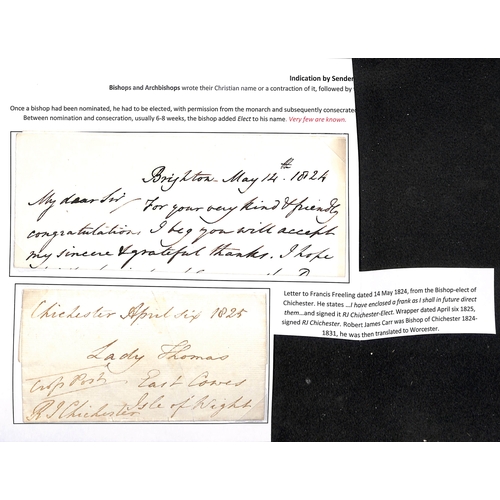 Indication by Sender
Bishops and Archbishops wrote their Christian name or a contraction of it, followed by
Once a bishop had been nominated, he had to be elected, with permission from the monarch and subsequently consecrate
Between nomination and consecration, usually 6-8 weeks, the bishop added Elect to his name. Very few are known.
Brighton. May 14th. 1824
My dear Sir
For your very kind & friendly
congratulation, I beg you will accept
my sincere & grateful thanks. I hope
Letter to Francis Freeling dated 14 May 1824, from the Bishop-elect of
Chichester. He states ...I have enclosed a frank as I shall in future direct
them...and signed it RJ Chichester-Elect. Wrapper dated April six 1825,
signed RJ Chichester. Robert James Carr was Bishop of Chichester 1824-
1831, he was then translated to Worcester.
Chichester April six 1825
Lady Thomas
Crop Post East Cowes
RJ Chichester Isle of Wight